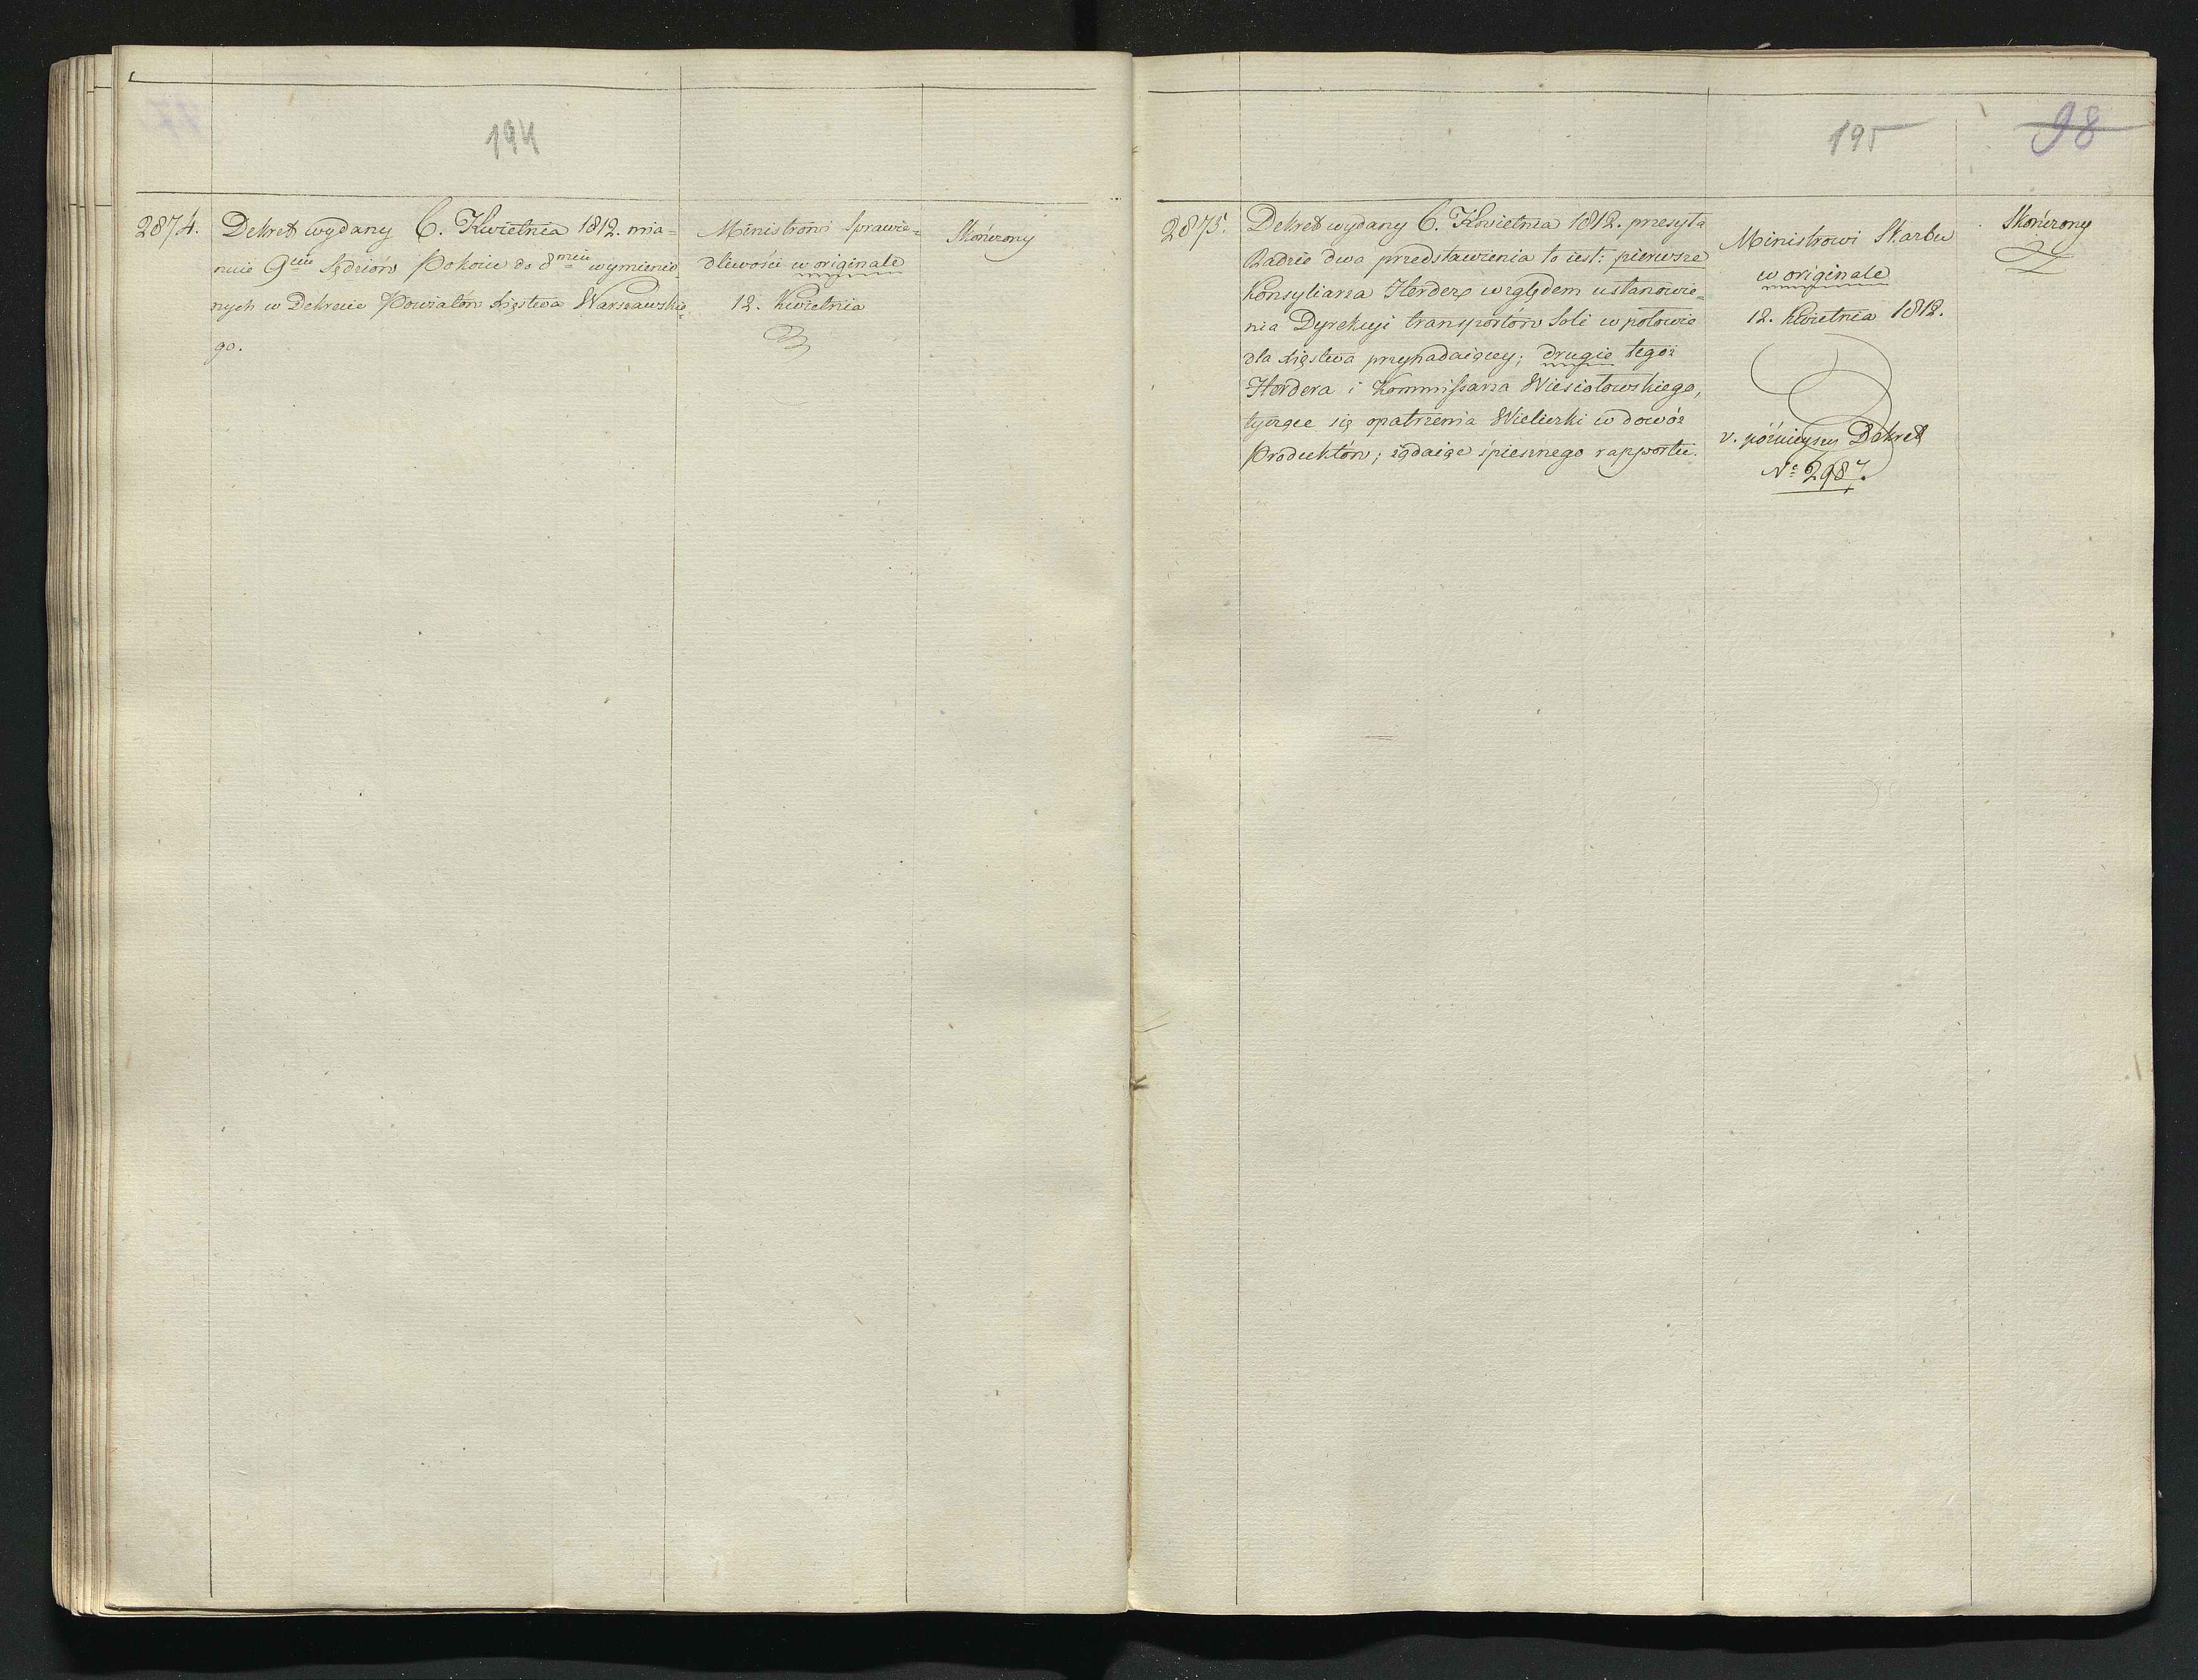 194
2874.
Dekret wydany 6. Kwietnia 1812. mia=
nuie 9ciu Sędziów Pokoiu do 8miu wymienio=
nych w Dekrecie Powiatów Xięstwa Warszawskie=
go.
Ministrowi Sprawie=
dliwości w originale
12. Kwietnia
Skończony
195
98
2875.
Dekret wydany 6. Kwietnia 1812. przesyła
Radzie dwa przedstawienia to iest: pierwsze
Konsyliarza Herdera względem ustanowie=
nia Dyrekcyi transportów Soli w połowie
dla Xięstwa przypadaiącey; drugie tegoż
Herdera i Kommissarza Wiesiołowskiego,
tyczące się opatrzenia Wieliczki w dowóz
Produktów; żądaiąc śpiesznego rapportu.
Ministrowi Skarbu
w originale
12. Kwietnia 1812.
v. późnieyszy Dekret
No 2987.
Skończony